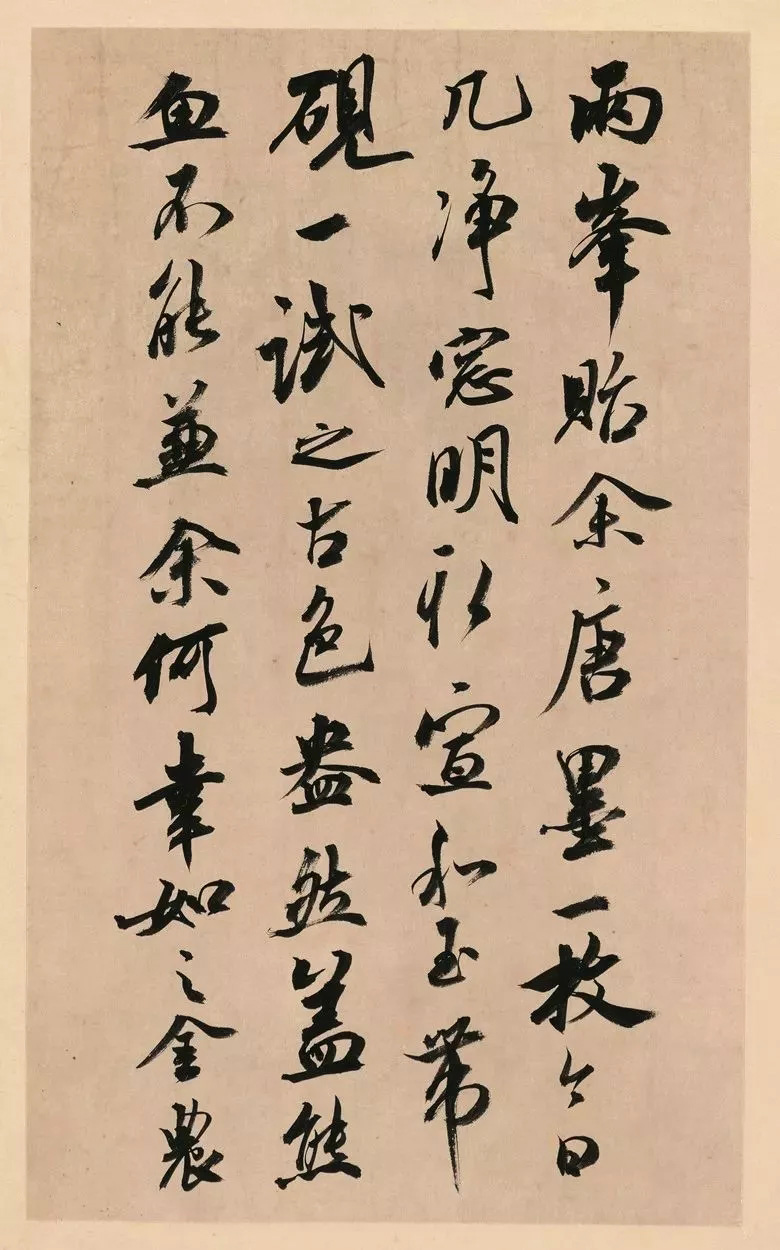 兩峯貽余唐墨一枚今日
几净窓明取宣和玉帶
硯一試之古色盎然盖熊
魚不能兼余何幸如之金農